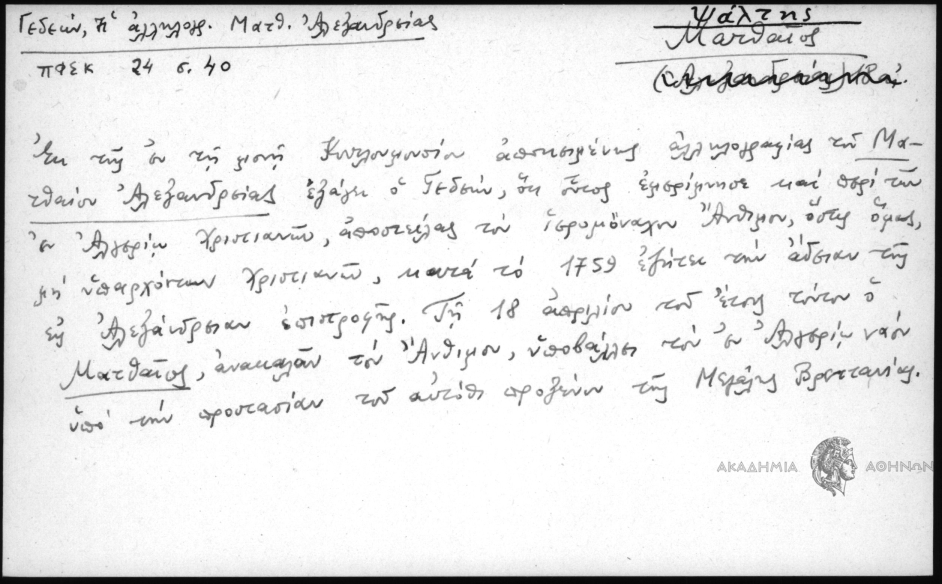 Γεδεών, Ἡ ἀλληλογρ. Ματθ. Ἀλεξανδρείας
ΠΦΕΚ 24 σ. 40
Ψάλτης
Ματθαῖος
Ἐκ τῆς ἐν τῇ μονῇ Κουτλουμουσίου ἀποκειμένης ἀλληλογραφίας τοῦ Ματ-
θαίου Ἀλεξανδρείας ἐξάγει ὁ Γεδεών, ὅτι οὗτος ἐμερίμνησε καὶ περὶ τῶν
ἐν Ἀλγερίῳ Χριστιανῶν, ἀποστείλας τὸν ἱερομόναχον Ἄνθιμον, ὅστις ὅμως,
μὴ ὑπαρχόντων Χριστιανῶν, κατὰ τὸ 1759 ἐζήτει τὴν ἄδειαν τῆς
εἰς Ἀλεξάνδρειαν ἐπιστροφῆς. Τῇ 18 ἀπριλίου τοῦ ἔτους τούτου ὁ
Ματθαῖος, ἀνακαλῶν τὸν Ἄνθιμον, ὑποβάλλει τὸν ἐν Ἀλγερίῳ ναὸν
ὑπὸ τὴν προστασίαν τοῦ αὐτόθι προξένου τῆς Μεγάλης Βρεττανίας.
ΑΚΑΔΗΜΙΑ ΑΘΗΝΩΝ